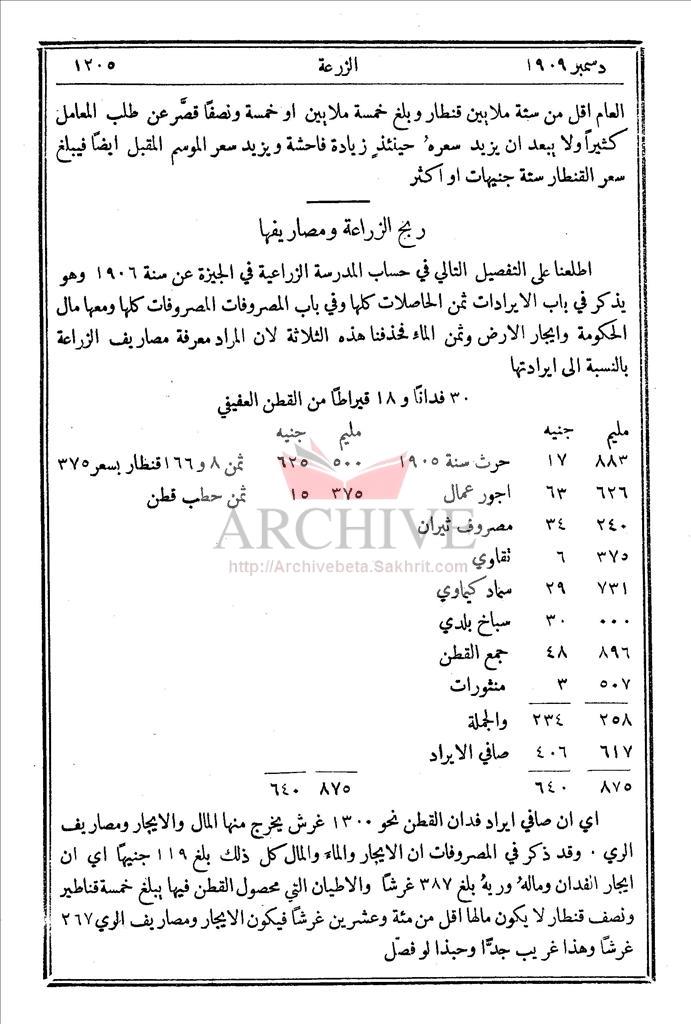 دسمبر ١٩٠٩ الزرعة ١٢٠٥
العام اقل من ستة ملايين قنطار وبلغ خمسة ملايين او خمسة ونصفًا قصَّر عن طلب المعامل
كثيرًا ولا يبعد ان يزيد سعرهُ حينئذٍ زيادة فاحشة ويزيد سعر الموسم المقبل ايضًا فيبلغ
سعر القنطار ستة جنيهات او اكثر
ربح الزراعة ومصاريفها
اطلعنا على التفصيل التالي في حساب المدرسة الزراعية في الجيزة عن سنة ١٩٠٦ وهو
يذكر في باب الايرادات ثمن الحاصلات كلها وفي باب المصروفات المصروفات كلها ومعها مال
الحكومة وايجار الارض وثمن الماء فحذفنا هذه الثلاثة لان المراد معرفة مصاريف الزراعة
بالنسبة الى ايرادتها
٣٠ فدانًا و ١٨ قيراطًا من القطن العفيفي
مليم جنيه مليم جنيه
٨٨٣ ١٧ حرث سنة ١٩٠٥ ٥٠٠ ٦٢٥ ثمن ٨ و ١٦٦ قنطار بسعر ٣٧٥
٦٢٦ ٦٣ اجور عمال ٣٧٥ ١٥ ثمن حطب قطن
٢٤٠ ٣٤ مصروف ثيران
٣٧٥ ٦ تقاوي
٧٣١ ٢٩ سماد كيماوي
٠٠٠ ٣٠ سباخ بلدي
٨٩٦ ٤٨ جمع القطن
٥٠٧ ٣ منثورات
٢٥٨ ٢٣٤ والجملة
٦١٧ ٤٠٦ صافي الايراد
٨٧٥ ٦٤٠ ٨٧٥ ٦٤٠
اي ان صافي ايراد فدان القطن نحو ١٣٠٠ غرش يخرج منها المال والايجار ومصاريف
الري . وقد ذكر في المصروفات ان الايجار والماء والمال كل ذلك بلغ ١١٩ جنيهًا اي ان
ايجار الفدان ومالهُ وريهُ بلغ ٣٨٧ غرشًا والاطيان التي محصول القطن فيها يبلغ خمسة قناطير
ونصف قنطار لا يكون مالها اقل من مئة وعشرين غرشًا فيكون الايجار ومصاريف الري ٢٦٧
غرشًا وهذا غريب جدًّا وحبذا لو فصّل
ARCHIVE
http://Archivebeta.Sakhrit.com